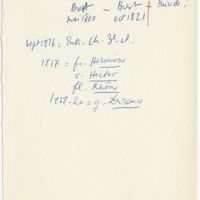 Brest – Brest + Suicide?
mai 1800 oct 1821
Sept 1816 = Ent. Ch. 3e cl.
1817 = fr. Hermione
v. Hector
fl. Rhône
1818-20 = g. Durance